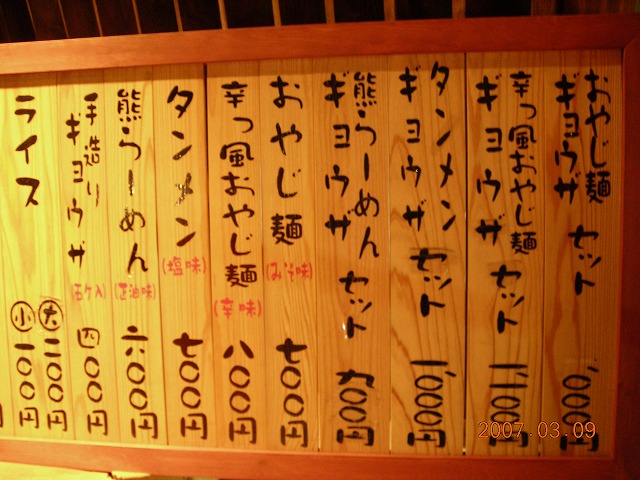 おやじ麺
ギョウザ セット 1,000円
辛っ風おやじ麺
ギョウザ セット 1,100円
タンメン
ギョウザ セット 1,000円
熊らーめん
ギョウザ セット 九〇〇円
おやじ麺 (みそ味) 七〇〇円
辛っ風おやじ麺 (辛味) 八〇〇円
タンメン (塩味) 七〇〇円
熊らーめん (正油味) 六〇〇円
手造り
ギョウザ (五ケ入) 四〇〇円
ライス
大 二〇〇円
小 一〇〇円
2007.03.09